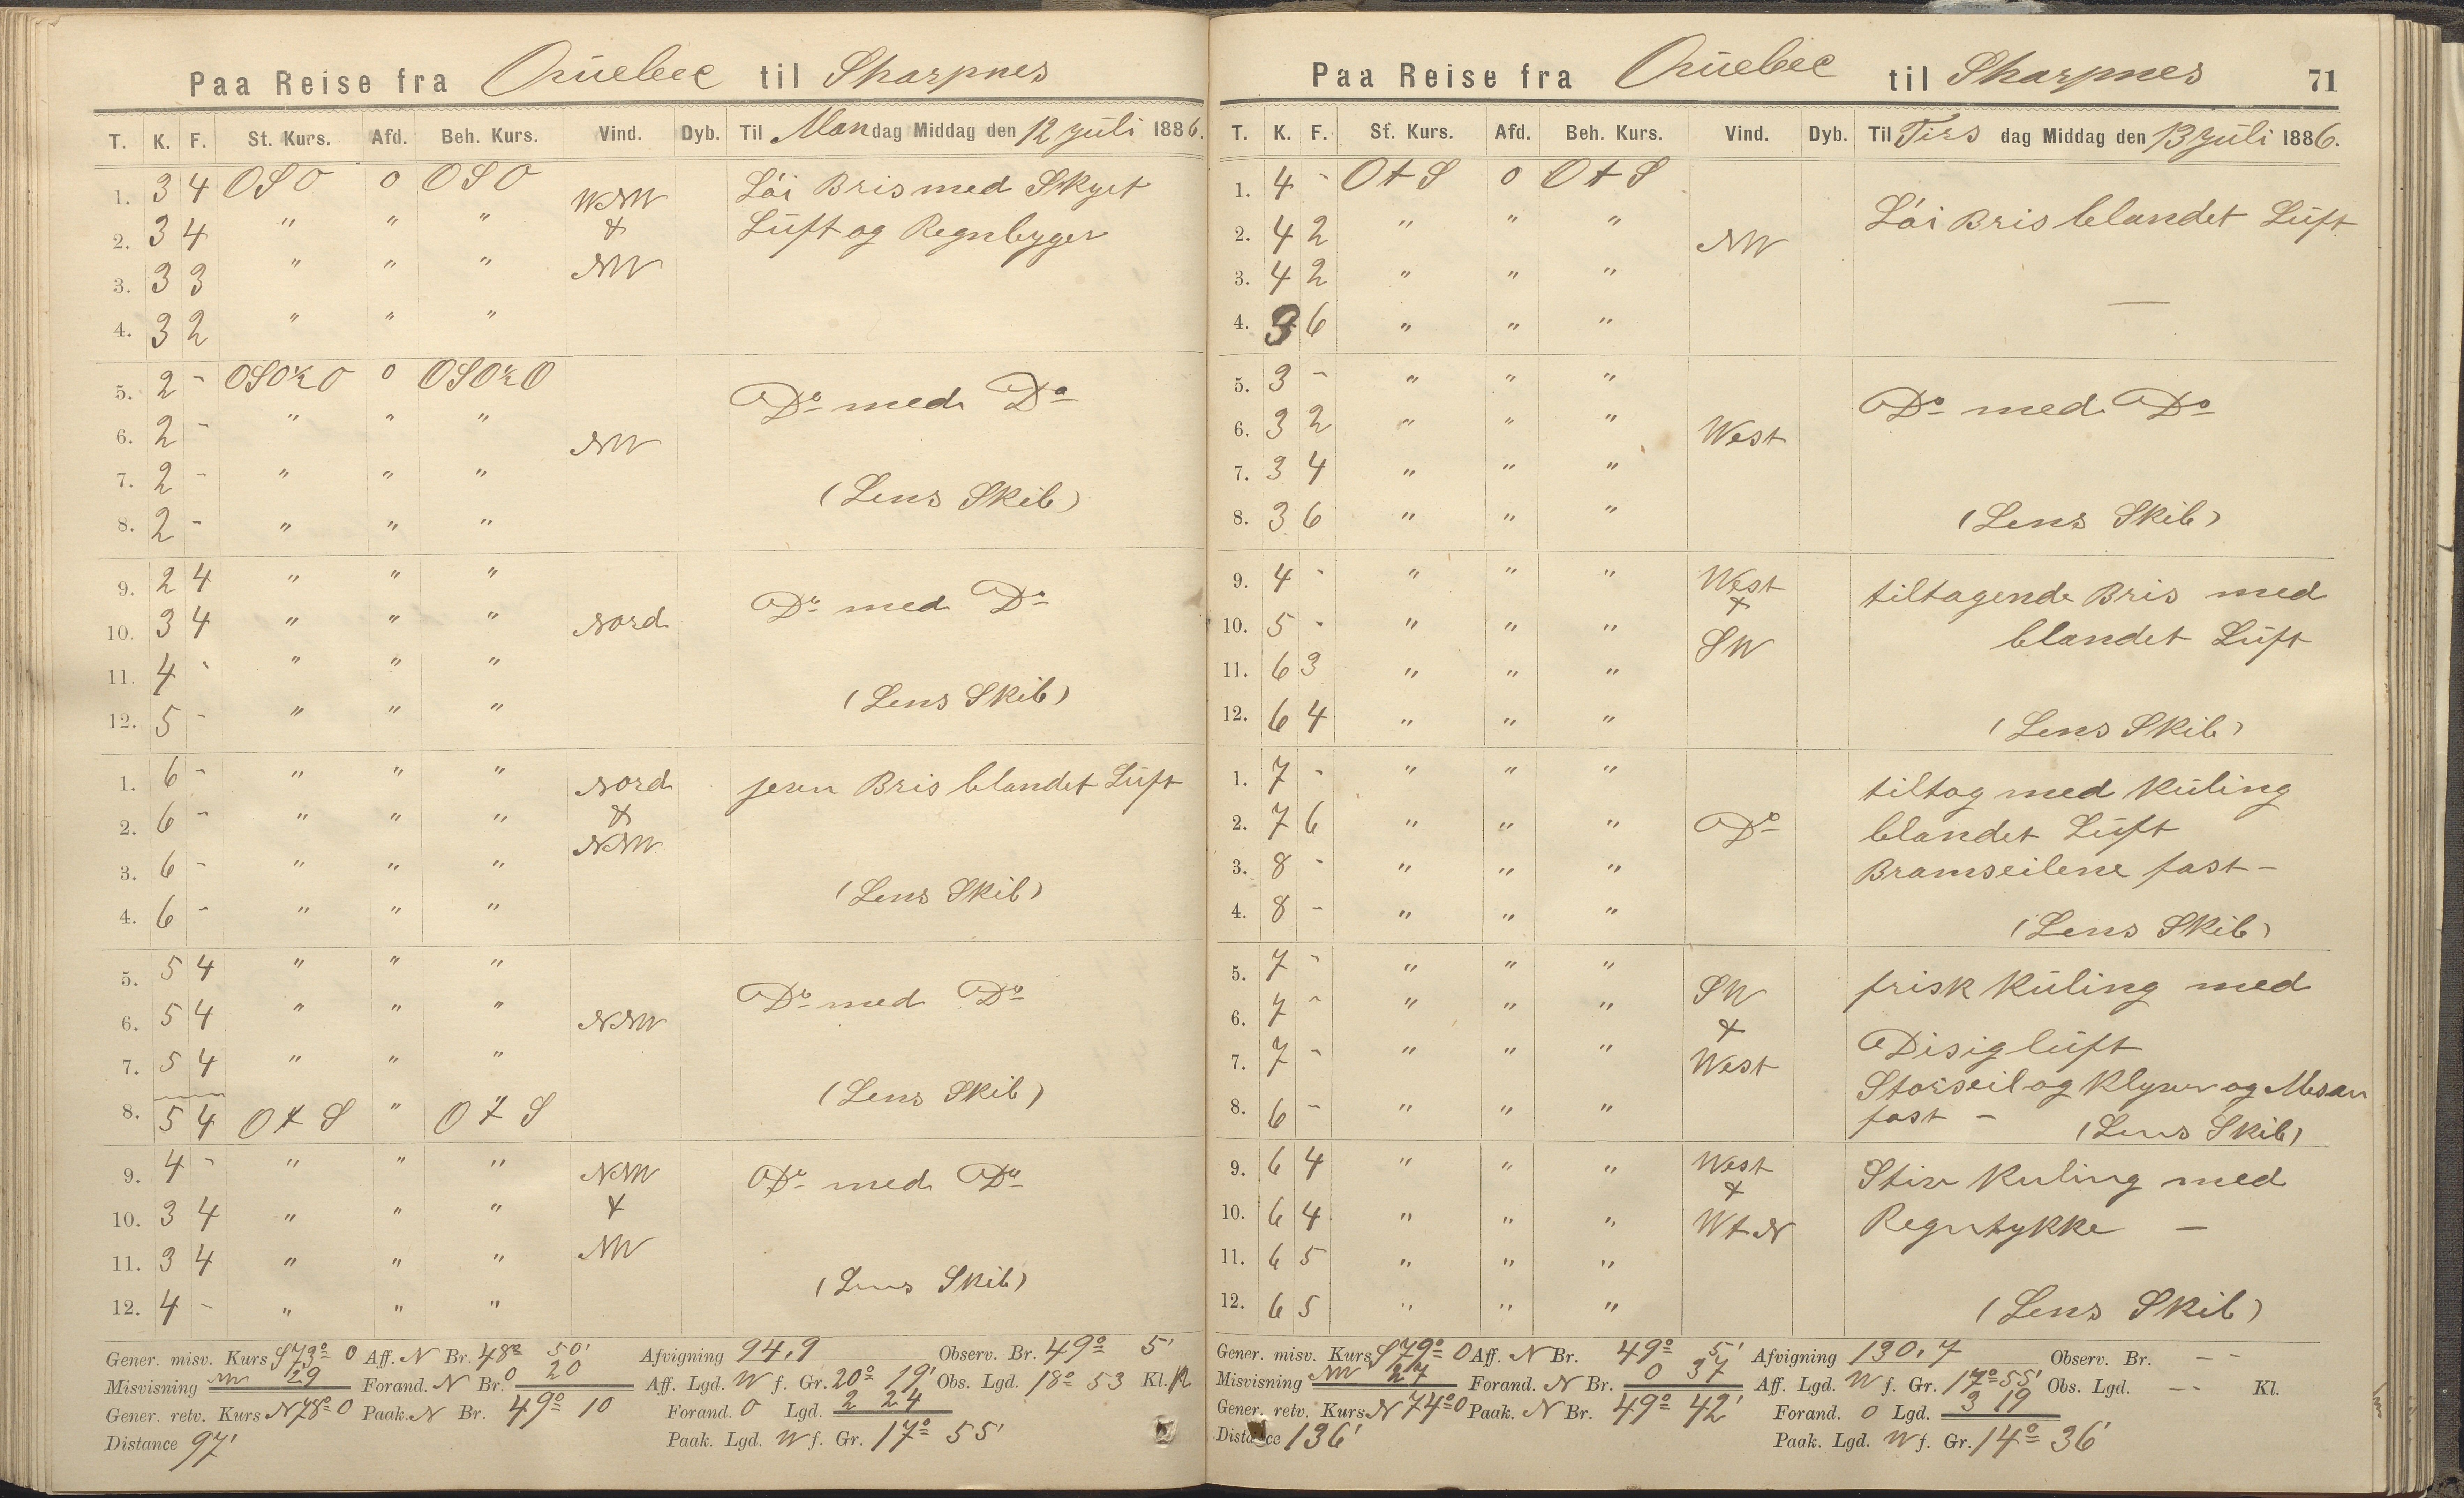 Paa Reise fra Quebec til Sharpnes
T. K. F. St. Kurs. Afd. Beh. Kurs. Vind. Dyb. Til Mandag Middag den 12 Juli 1886.
1. 3 4 OSO 0 OSO WNW Löi Bris med Skyet
2. 3 4 " " " & Luft og Regnbyger
3. 3 3 " " " NW
4. 3 2 " " "
5. 2 - OSO½O 0 OSO½O Do med Do
6. 2 - " " " NW
7. 2 - " " " (Lens Skib)
8. 2 - " " "
9. 2 4 " " " Do med Do
10. 3 4 " " " Nord
11. 4 - " " " (Lens Skib)
12. 5 - " " "
1. 6 - " " " Nord jevn Bris blandet Luft
2. 6 - " " " & NNW
3. 6 - " " " (Lens Skib)
4. 6 - " " "
5. 5 4 " " " Do med Do
6. 5 4 " " " NNW
7. 5 4 " " " (Lens Skib)
8. 5 4 OtS " OtS
9. 4 - " " " NNW Do med Do
10. 3 4 " " " &
11. 3 4 " " " NW (Lens Skib)
12. 4 - " " "
Gener. misv. Kurs S73° O Aff. N Br. 48° 50' Afvigning 94,9 Observ. Br. 49° 5'
Misvisning 29 Forand. N Br. 0 20 Aff. Lgd. W f. Gr. 20° 19' Obs. Lgd. 18° 53 Kl. 12
Gener. retv. Kurs N78° O Paak. N Br. 49° 10 Forand. O Lgd. 2 24
Distance 97' Paak. Lgd. W f. Gr. 17° 55'
Paa Reise fra Quebec til Sharpnes 71
T. K. F. St. Kurs. Afd. Beh. Kurs. Vind. Dyb. Til Tirsdag Middag den 13 Juli 1886.
1. 4 - OtS 0 OtS Löi Bris blandet Luft
2. 4 2 " " " NW
3. 4 2 " " "
4. 3 6 " " " —
5. 3 - " " " Do med Do
6. 3 2 " " " West
7. 3 4 " " "
8. 3 6 " " " (Lens Skib)
9. 4 - " " " West tiltagende Bris med
10. 5 - " " " & SW blandet Luft
11. 6 3 " " "
12. 6 4 " " " (Lens Skib)
1. 7 - " " " tiltog med Kuling
2. 7 6 " " " Do blandet Luft
3. 8 - " " " Bramseilene fast -
4. 8 - " " " (Lens Skib)
5. 7 - " " " SW frisk Kuling med
6. 7 - " " " &
7. 7 - " " " West Disig luft
Storseil og Klyver og Mesan
8. 6 - " " " fast - (Lens Skib)
9. 6 4 " " " West & Stiv Kuling med
10. 6 4 " " " WtN Regntykke -
11. 6 5 " " "
12. 6 5 " " " (Lens Skib)
Gener. misv. Kurs S79° O Aff. N Br. 49° 5' Afvigning 130,7 Observ. Br. - -
Misvisning 27 Forand. N Br. 0 37 Aff. Lgd. W f. Gr. 17° 55' Obs. Lgd. - - Kl.
Gener. retv. Kurs N74° O Paak. N Br. 49° 42' Forand. O Lgd. 3 19
Distance 136' Paak. Lgd. W f. Gr. 14° 36'